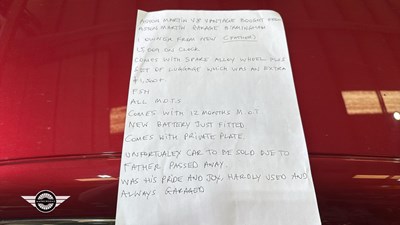 ASTON MARTIN V8 VANTAGE BOUGHT FROM
ASTON MARTIN GARAGE BIRMINGHAM
1 OWNER FROM NEW (FATHER)
ON CLOCK
COMES WITH SPARE ALLOY WHEEL PLUS
SET OF LUGGAGE WHICH WAS AN EXTRA
FSH
ALL M.O.T.S
COMES WITH 12 MONTHS M.O.T
NEW BATTERY JUST FITTED
COMES WITH PRIVATE PLATE
UNFORTUALEY CAR TO BE SOLD DUE TO
FATHER PASSED AWAY
WAS HIS PRIDE AND JOY, HARDLY USED AND
ALWAYS GARAGED